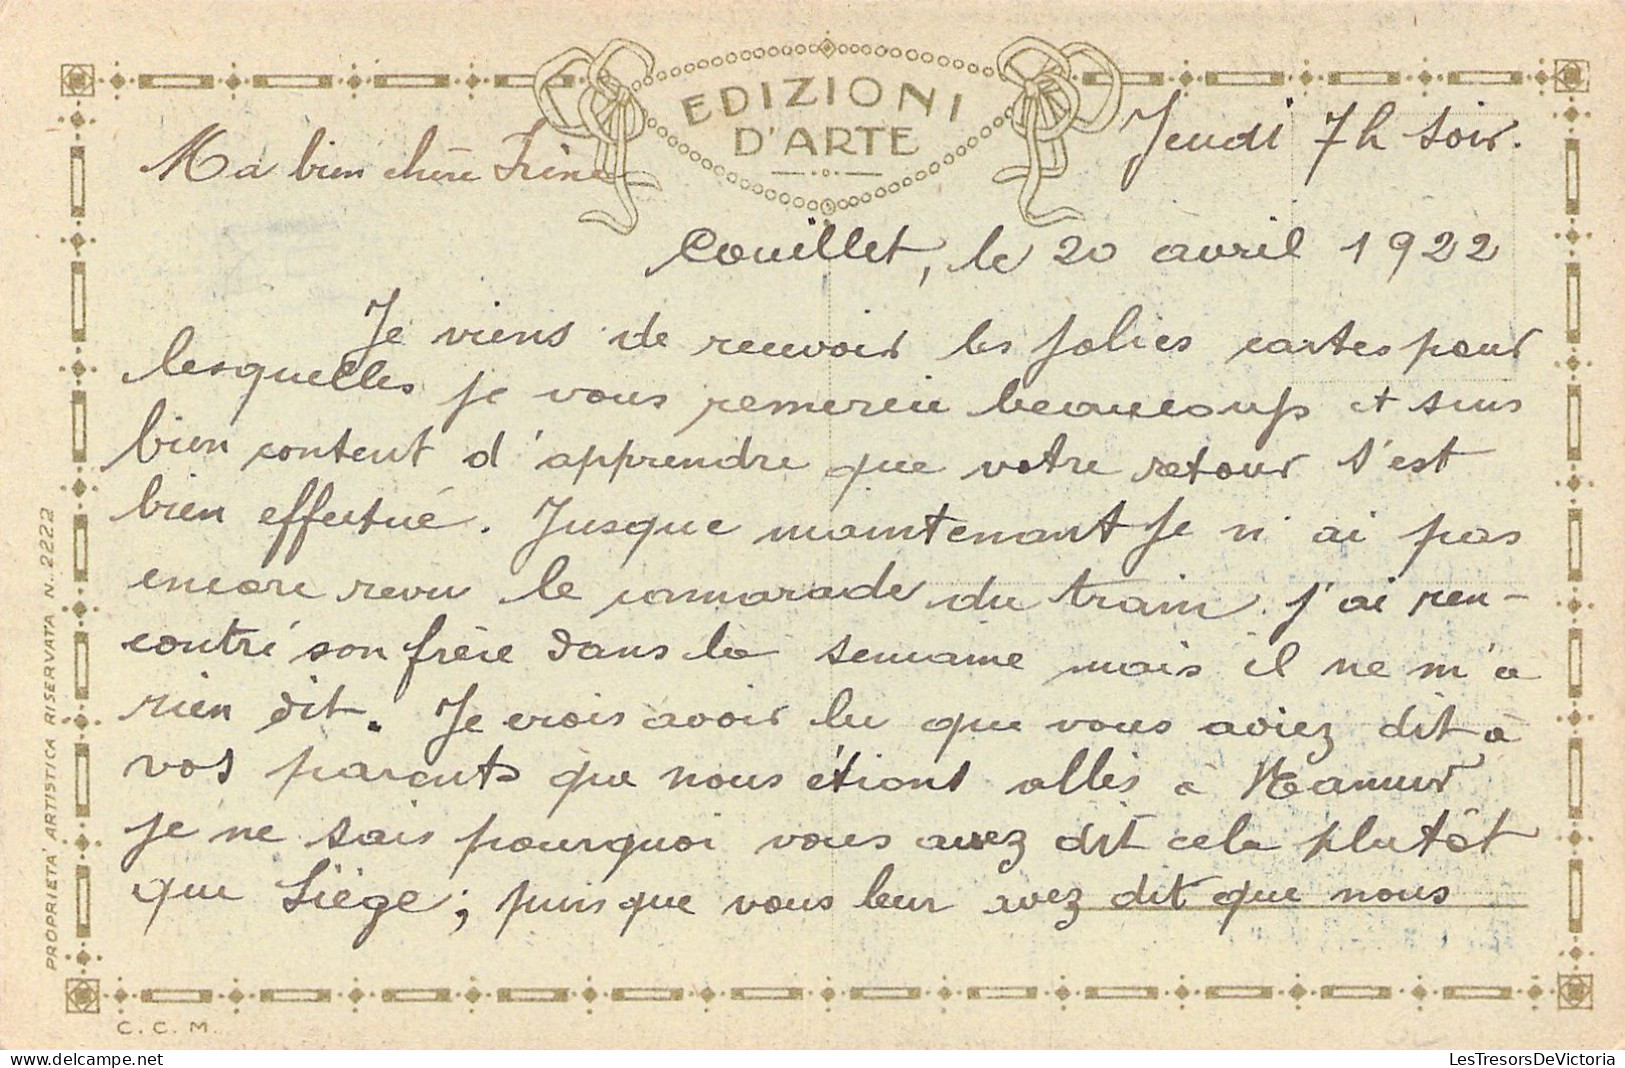 EDIZIONI
D'ARTE
Jeudi 7h soir.
Ma bien chère Irène
Couillet, le 20 avril 1922
Je viens de recevoir les jolies cartes pour
lesquelles je vous remercie beaucoup et suis
bien content d'apprendre que votre retour s'est
bien effectué. Jusque maintenant je n'ai pas
encore revu le camarade du train. j'ai ren-
contré son frère dans la semaine mais il ne m'a
rien dit. Je crois avoir lu que vous aviez dit à
vos parents que nous étions allés à Namur
je ne sais pourquoi vous avez dit cela plutôt
que Liège; puisque vous leur avez dit que nous
PROPRIETA' ARTISTICA RISERVATA N. 2222
C. C. M.
LesTresorsDeVictoria
delcampe.net